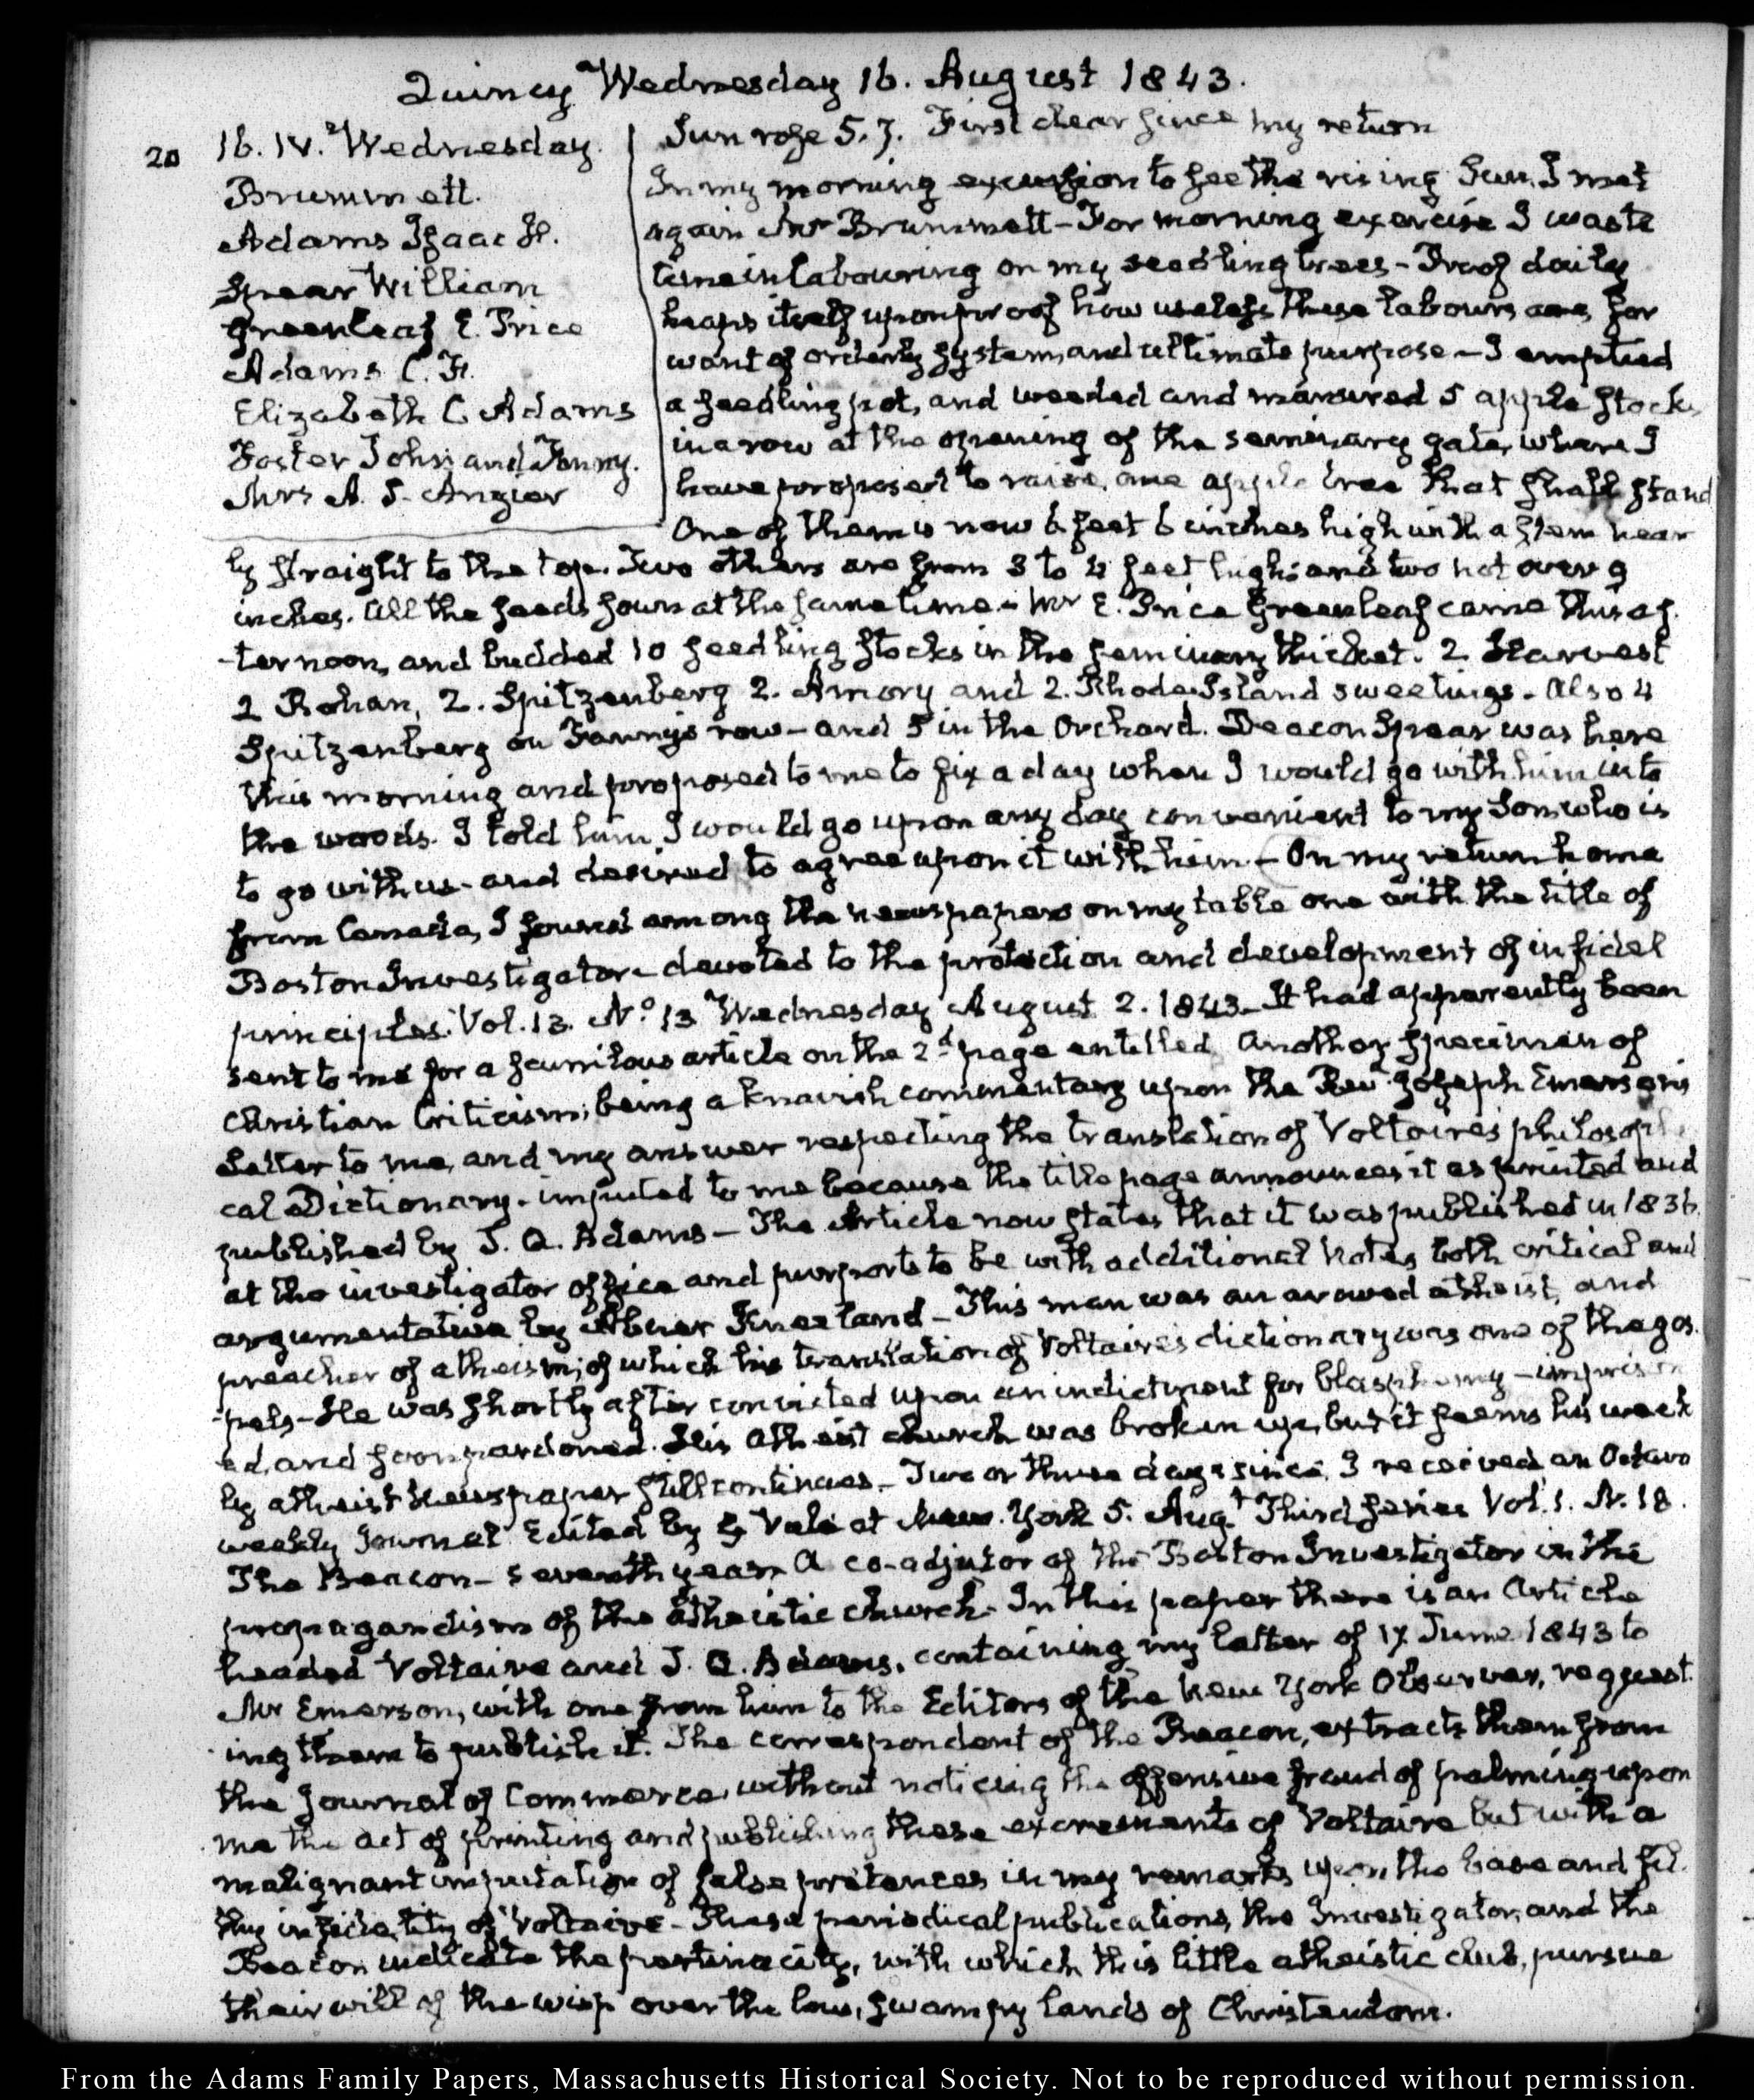 Quincy Wednesday 16. August 1843.
20
16. IV. Wednesday.
Brummett.
Adams Isaac H.
Spear William
Greenleaf E. Price
Adams C. F.
Elizabeth C. Adams
Foster John and Fanny.
Mrs A. S. Angier
Sun rose 5.7. First clear since my return
In my morning excursion to see the rising Sun, I met
again Mr Brummett – For morning exercise I waste
time in labouring on my seedling trees – Proof daily
heaps itself upon proof how useless these labours are, for
want of orderly system, and ultimate purpose – I emptied
a seedling pot, and weeded and manured 5 apple stocks
in a row at the opening of the seminary gate, where I
have proposed to raise, one apple tree that shall stand
One of them is now 6 feet 6 inches high with a stem near
ly straight to the top. Two others are from 3 to 4 feet high; and two not over 9
inches. All the seeds sown at the same time – Mr E. Price Greenleaf came this af-
-ternoon, and budded 10 seedling stocks in the seminary thicket. 2 Harvest
2 Rohan, 2. Spitzenberg 2. Amory and 2. Rhode Island sweetings – Also 4
Spitzenberg on Fanny's row – and 5 in the Orchard. Deacon Spear was here
this morning and proposed to me to fix a day when I would go with him into
the woods. I told him I would go upon any day convenient to my Son who is
to go with us – and desired to agree upon it with him – On my return home
from Canada, I found among the newspapers on my table one with the title of
Boston Investigator – devoted to the protection and development of infidel
principles. Vol. 13. No. 13 Wednesday August 2. 1843 – It had apparently been
sent to me for a scurrilous article on the 2d page entitled Another specimen of
Christian Criticism; being a knavish commentary upon the Revd. Joseph Emerson's
Letter to me, and my answer respecting the translation of Voltaire's philosophi
cal Dictionary – imputed to me because the title page announces it as printed and
published by J. Q. Adams – The Article now states that it was published in 1836.
at the investigator office and purports to be with additional Notes both critical and
argumentative by Abner Kneeland – This man was an avowed atheist, and
preacher of atheism; of which his translation of Voltaire's dictionary was one of the gos-
-pels – He was shortly after convicted upon an indictment for blasphemy – imprison
ed, and soon pardoned. His Atheist church was broken up, but it seems his week
ly atheist Newspaper still continues – Two or three days since, I received, an Octavo
weekly Journal Edited by G Vale at New York 5. Augt. Third series Vol. 1. N. 18.
The Beacon – seventh year. A co-adjutor of the Boston Investigator in the
propagandism of the atheistic church – In this paper there is an Article
headed Voltaire and J. Q. Adams, containing my letter of 17 June 1843 to
Mr Emerson, with one from him to the Editors of the New York Observer, request-
ing them to publish it. The correspondent of the Beacon, extracts them from
the Journal of Commerce, without noticing the offensive fraud of palming upon
me the act of printing and publishing these excrements of Voltaire but with a
malignant imputation of false pretences in my remarks upon the base and fil-
thy infidelity of Voltaire – These periodical publications, the Investigator, and the
Beacon indicate the pertinacity, with which this little atheistic club, pursue
their will of the wisp over the low, swampy lands of Christendom.
From the Adams Family Papers, Massachusetts Historical Society. Not to be reproduced without permission.